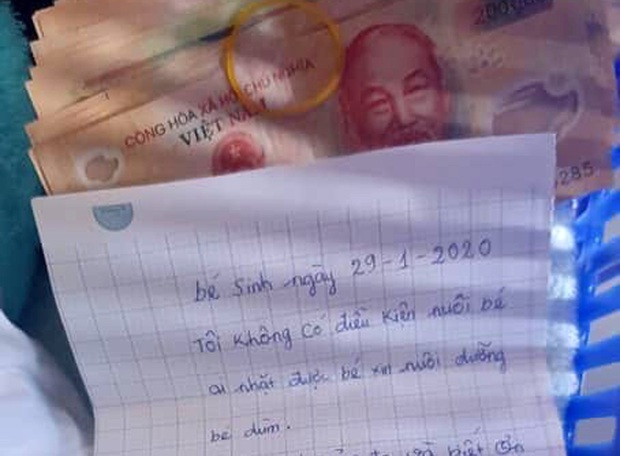 200000
CỘNG HÒA XÃ HỘI CHỦ NGHĨA
VIỆT NAM
285
bé Sinh ngày 29-1-2020
Tôi Không Có điều Kiện nuôi bé
ai nhặt được bé xin nuôi dưỡng
bé dùm.
biết ơn